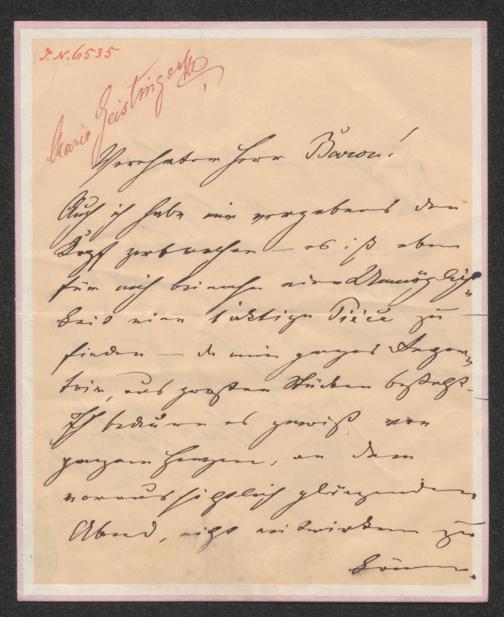 I.N. 61535
Marie Geistinger
Verehrter Herr Baron!
Auch ich habe mir vergebens den
Kopf zerbrochen – es ist eben
für mich beinahe eine Unmöglich-
keit eine 1aktige Pièce zu
finden – da mein ganzes Reper-
toir, aus großen Stücken besteht.
Ich bedaure es gewiß von
ganzem Herzen, an dem
voraussichtlich glänzenden
Abend, nicht mitwirken zu
können.